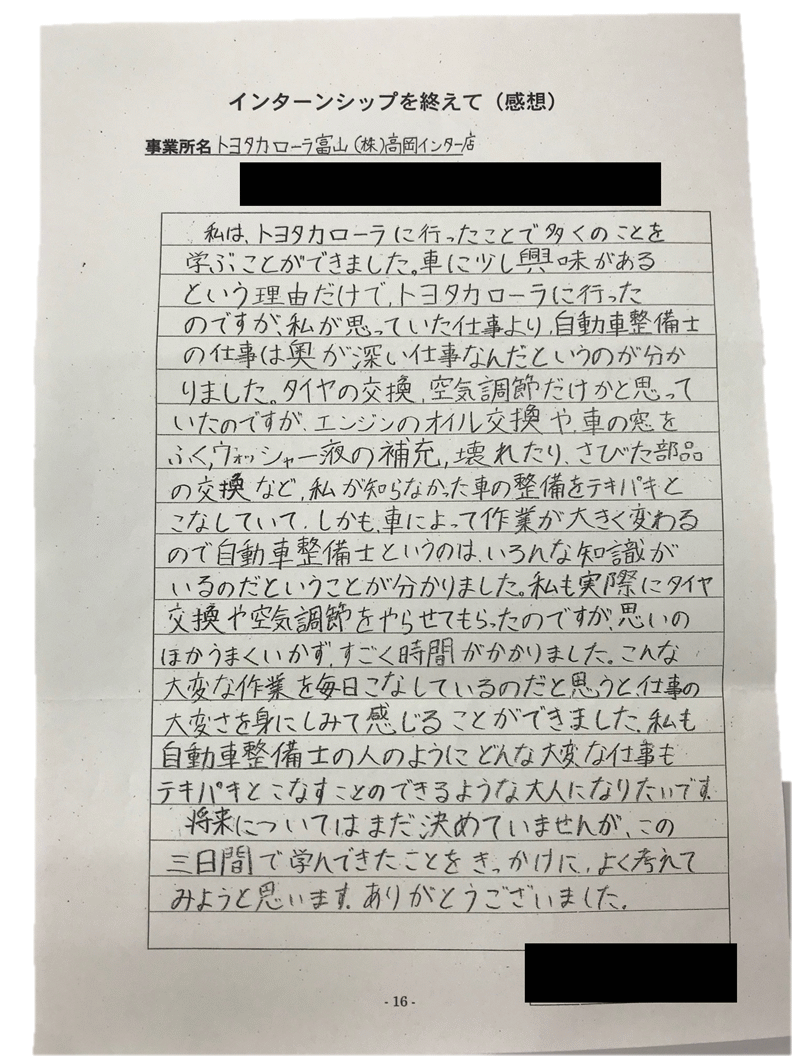 インターンシップを終えて（感想）
事業所名 トヨタカローラ富山（株）高岡インター店
私は、トヨタカローラに行ったことで多くのことを
学ぶことができました。車に少し興味がある
という理由だけで、トヨタカローラに行った
のですが、私が思っていた仕事より、自動車整備士
の仕事は奥が深い仕事なんだというのが分か
りました。タイヤの交換、空気調節だけかと思って
いたのですが、エンジンのオイル交換や、車の窓を
ふく、ウォッシャー液の補充、壊れたり、さびた部品
の交換など、私が知らなかった車の整備をテキパキと
こなしていて、しかも、車によって作業が大きく変わる
ので自動車整備士というのは、いろんな知識が
いるのだということが分かりました。私も実際にタイヤ
交換や空気調節をやらせてもらったのですが、思いの
ほかうまくいかず、すごく時間がかかりました。こんな
大変な作業を毎日こなしているのだと思うと、仕事の
大変さを身にしみて感じることができました。私も
自動車整備士の人のようにどんな大変な仕事も
テキパキとこなすことのできるような大人になりたいです。
将来についてはまだ決めていませんが、この
三日間で学んできたことをきっかけに、よく考えて
みようと思います。ありがとうございました。
- 16 -